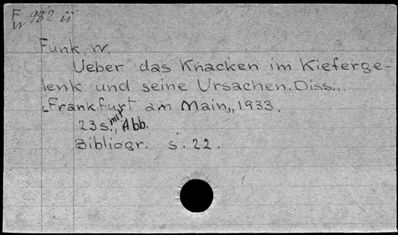 F 982 ii
W
Funk, W.
Ueber das Knacken im Kieferge-
lenk und seine Ursachen. Diss...
Frankfurt am Main, 1933.
23 s. mit Abb.
Bibliogr. s. 22.